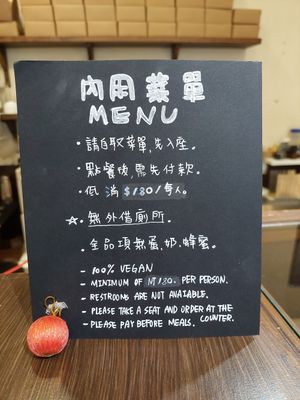 內用菜單
MENU
·請自取菜單,先入座.
·點餐後,需先付款.
·低消 $180/每人.
☆.無外借廁所.
·全品項無蛋.奶.蜂蜜.
- 100% VEGAN
- MINIMUM OF NT180. PER PERSON.
- RESTROONS ARE NOT AVAIABLE.
- PLEASE TAKE A SEAT AND ORDER AT THE COUNTER.
- PLEASE PAY BEFORE MEALS.